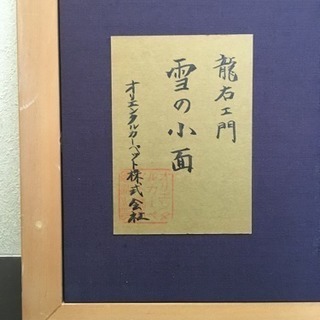 龍右エ門
雪の小面
オリエンタルカーペット株式会社